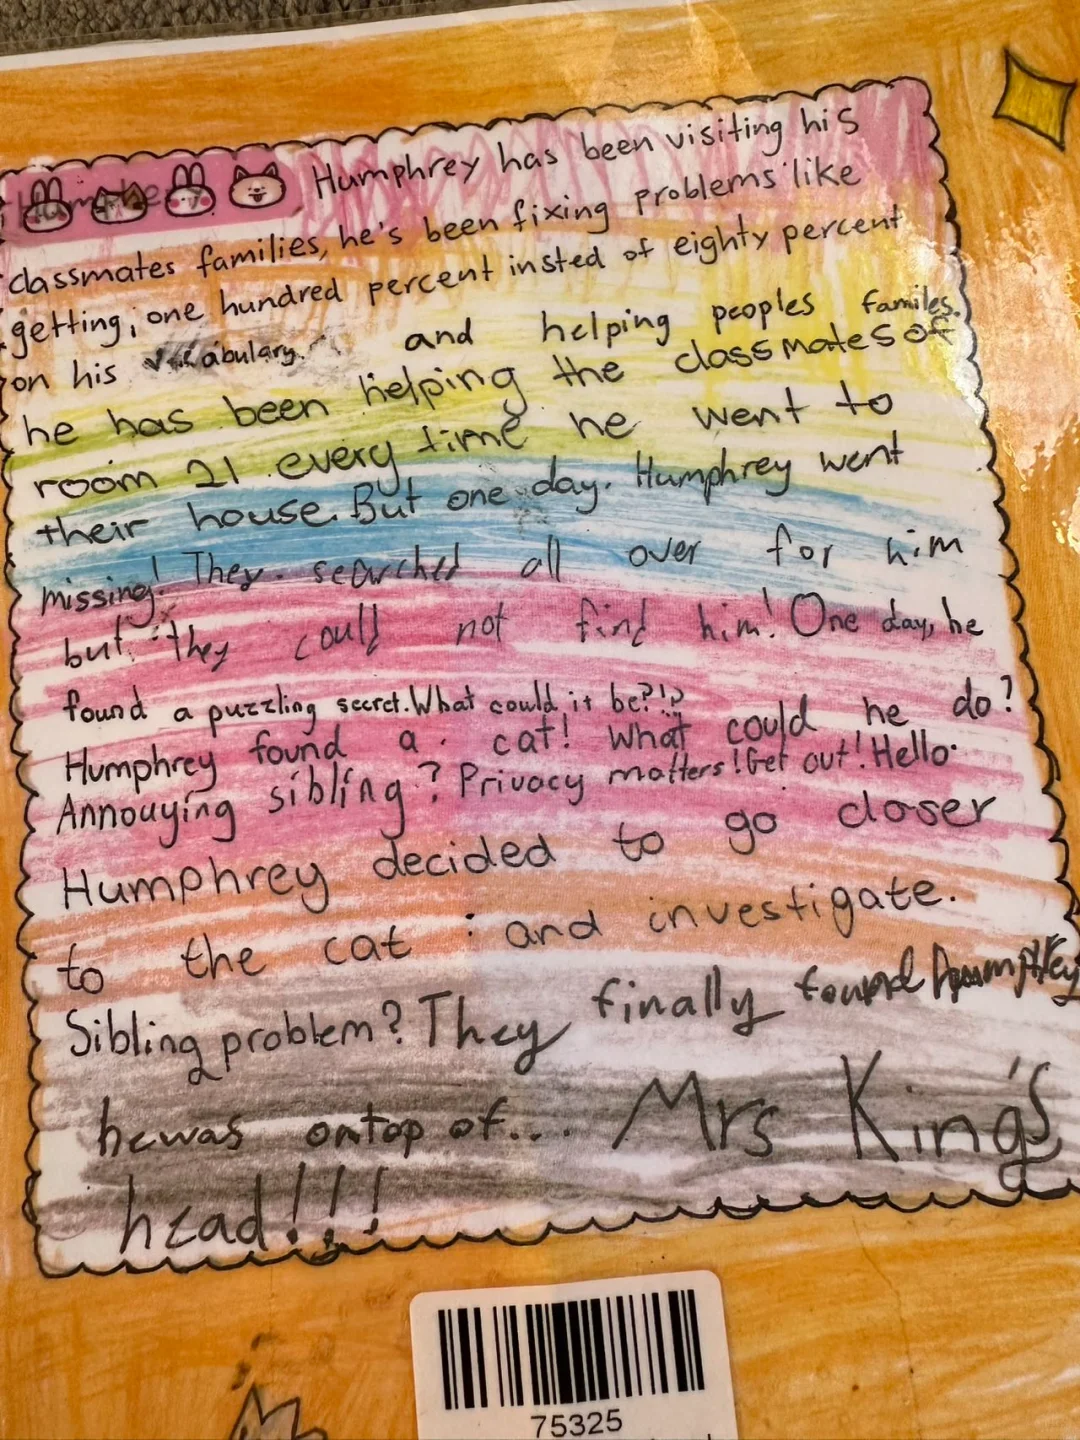 Humphrey has been visiting his
classmates families, he's been fixing problems like
getting, one hundred percent insted of eighty percent
on his vocabulary. and helping peoples familes.
he has been helping the classmates of
room 21 every time he went to
their house. But one day. Humphrey went
missing! They searched all over for him
but they could not find him! One day, he
found a puzzling secret. What could it be?!?
Humphrey found a cat! What could he do?
Annouying sibling? Privacy matters! Get out! Hello
Humphrey decided to go closer
to the cat and investigate.
Sibling problem? They finally found Humphrey
he was on top of... Mrs King's
head!!!
75325